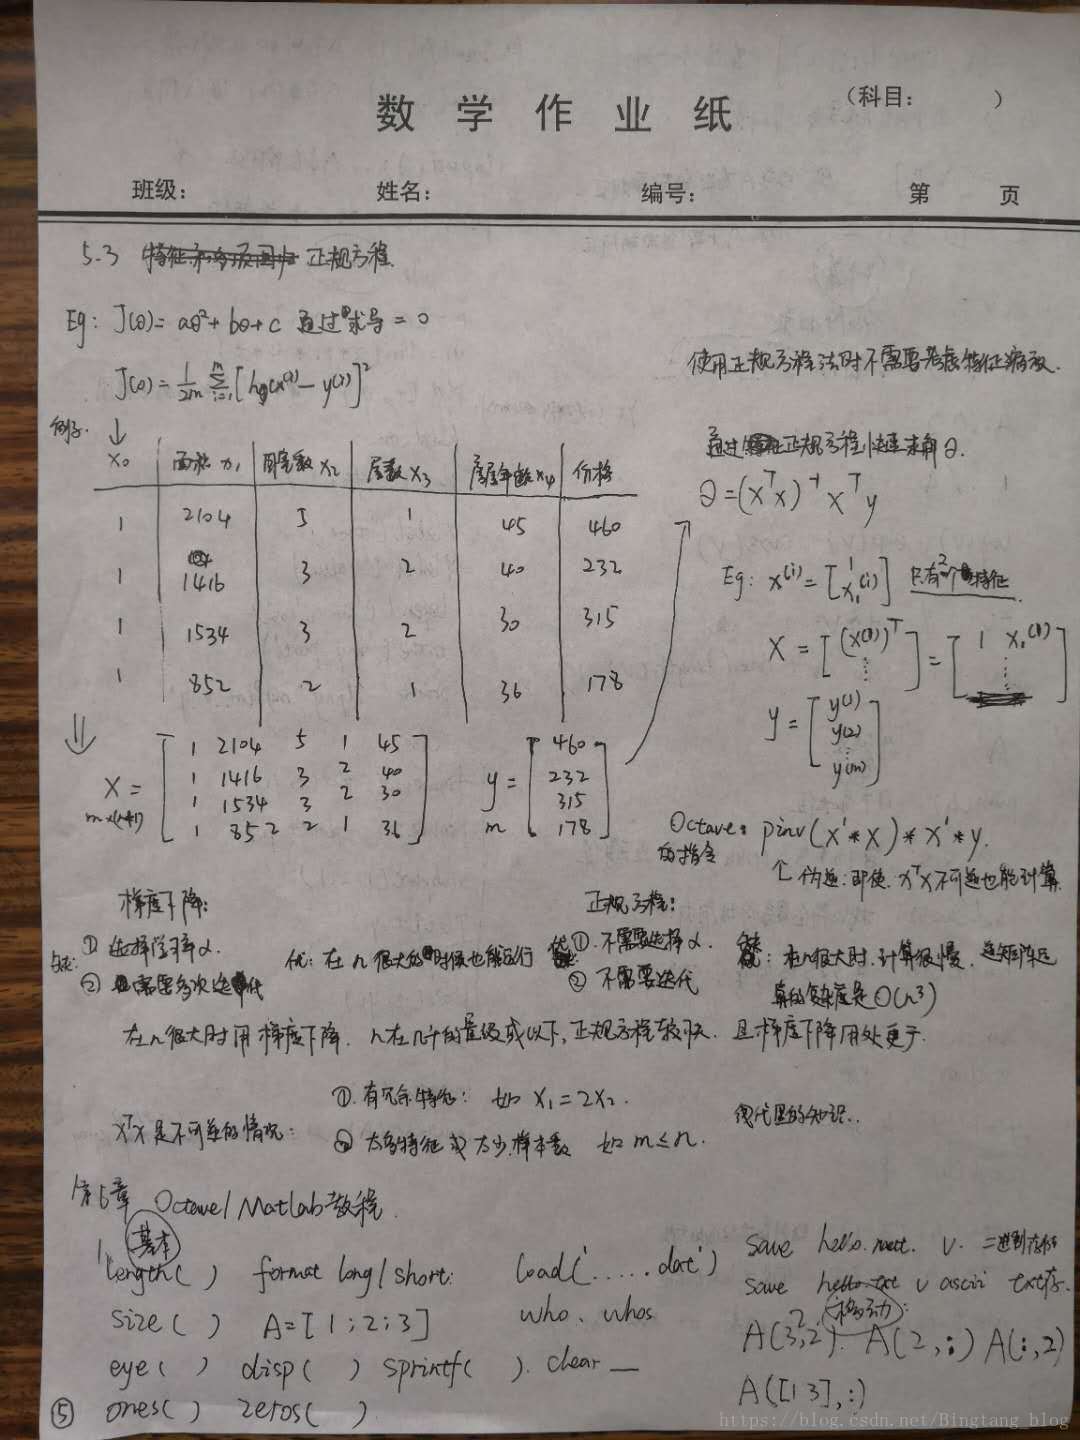 数学作业纸
(科目: )
班级: 姓名: 编号: 第 页
5.3 正规方程.
Eg: J(θ)=aθ²+bθ+c 通过求导=0
J(θ)=1/2m Σ(i=1→m)[hθ(x⁽ⁱ⁾)-y⁽ⁱ⁾]²
例子. ↓
x₀ 面积x₁ 卧室数x₂ 层数x₃ 房屋年数x₄ 价格
1 2104 5 1 45 460
1 1416 3 2 40 232
1 1534 3 2 30 315
1 852 2 1 36 178
⇓
X = [1 2104 5 1 45
1 1416 3 2 40
1 1534 3 2 30
1 852 2 1 36]
m×(n+1)
y = [460
232
315
178]
m
使用正规方程法时不需要考虑特征缩放.
通过正规方程快速求解θ.
θ=(XᵀX)⁻¹Xᵀy
Eg: x⁽ⁱ⁾=[1 x₁⁽ⁱ⁾] 只有2个特征.
X = [(x⁽¹⁾)ᵀ ⋮] = [1 x₁⁽¹⁾ ⋮]
y = [y⁽¹⁾ y⁽²⁾ ⋮ y⁽ᵐ⁾]
Octave: pinv(X'*X)*X'*y.
的指令
↑伪逆:即使XᵀX不可逆也能计算.
梯度下降: 正规方程:
缺: ① 选择学习率α. 优: 在n很大的时候也能运行 优: ①. 不需要选择α. 缺: 在n很大时.计算很慢. 逆矩阵运
② 需要多次迭代 ② 不需要迭代 算的复杂度是O(n³)
在n很大时用梯度下降. n在几千的量级或以下,正规方程较快. 且梯度下降用处更广.
XᵀX是不可逆的情况:
①. 有冗余特征: 如 x₁=2x₂.
② 太多特征或太少样本数 如 m≤n.
线代里的知识..
第6章 Octave/Matlab教程.
1. 基本
length( ) format long/short. load('.....dat') save hello.mat. v. 二进制存储
size( ) A=[1;2;3] who、whos save hello.txt v ascii txt存.
eye( ) disp( ) sprintf( ). clear __ A(3,2). A(2,:) A(:,2)
A([1 3],:)
⑤ ones( ) zeros( )
https://blog.csdn.net/Bingtang_blog